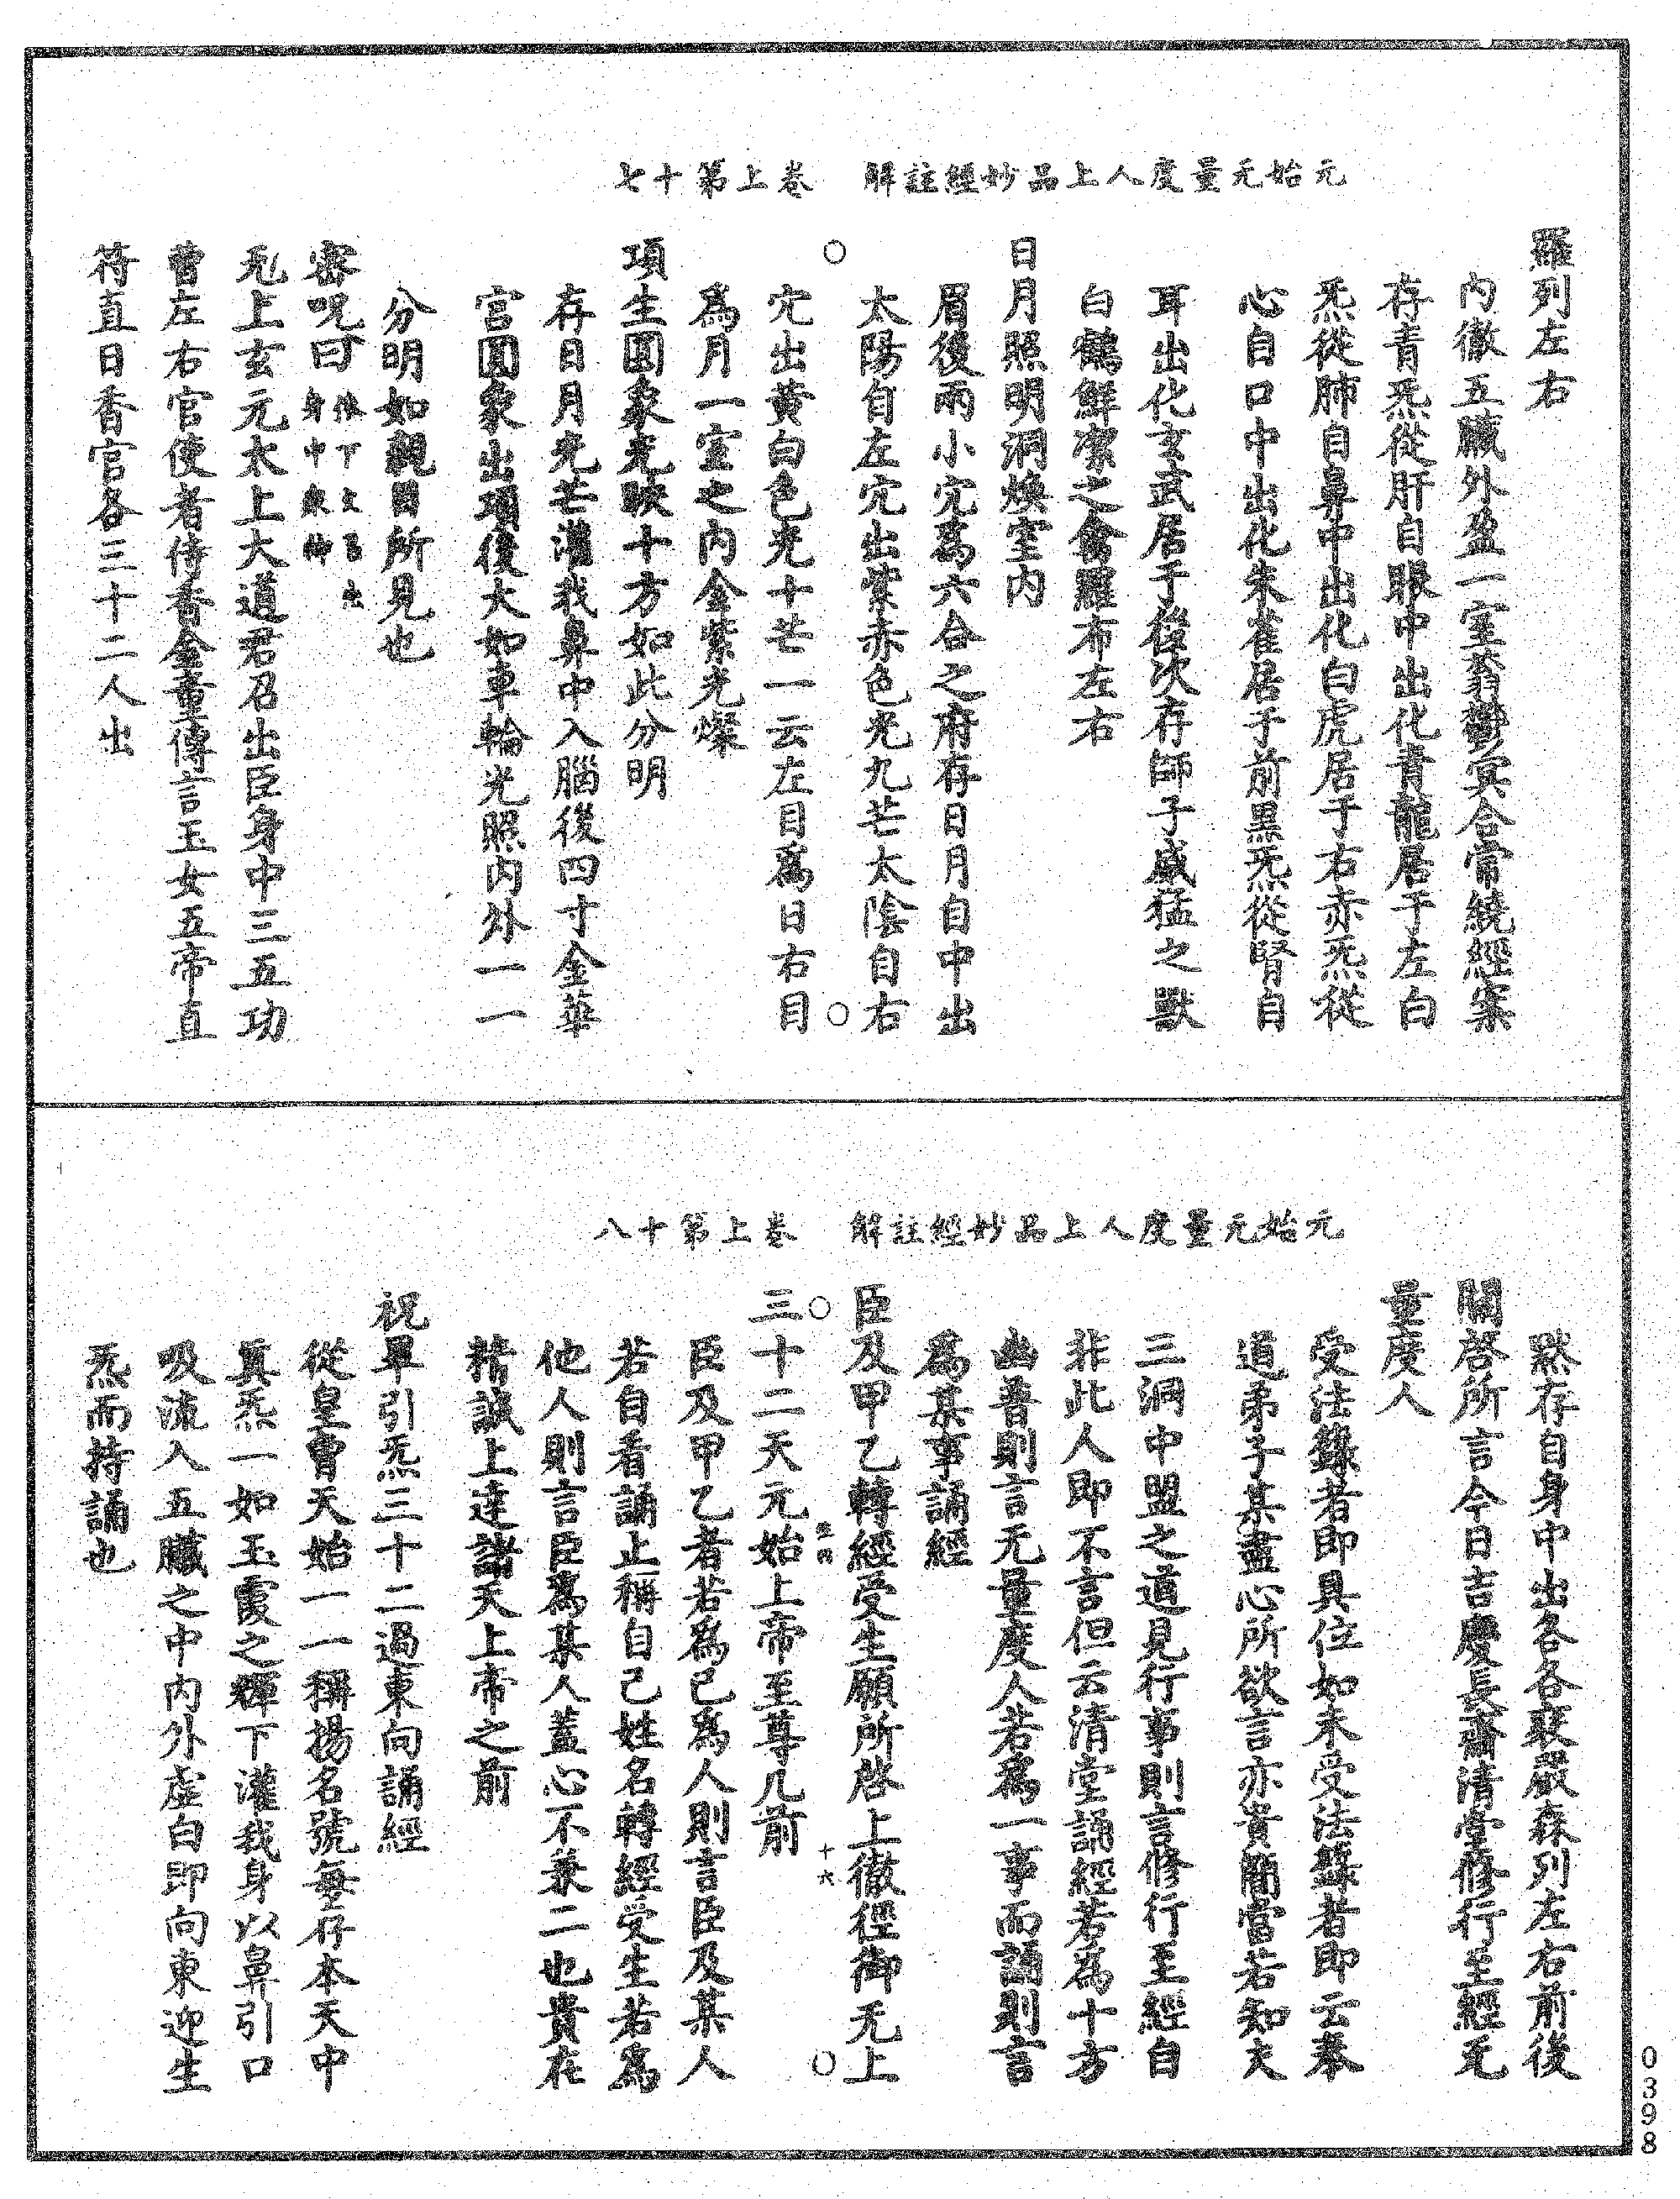 元始无量度人上品妙經註解　卷上第十七
羅列左右
內徹五臟外盈一室蓊欝冥合當繞經案
存青炁從肝自眼中出化青龍居于左白
炁從肺自鼻中出化白虎居于右赤炁從
心自口中出化朱雀居于前黑炁從腎自
耳出化玄武居于後次存師子威猛之獸
白鶴鮮潔之禽羅布左右
日月照明洞煥室內
眉後兩小穴為六合之府存日月自中出
太陽自左穴出紫赤色光九芒太陰自右
穴出黃白色光十芒一云左目為日右目
為月一室之內金紫光燦
項生圓象光映十方如此分明
存日月光芒灌我鼻中入腦後四寸金華
宮圓象出項後大如車輪光照內外一一
分明如親目所見也
密呪曰
身中
无上玄元太上大道君召出臣身中三五功
曹左右官使者侍香金童傳言玉女五帝直
符直日香官各三十二人出
元始无量度人上品妙經註解　卷上第十八
默存自身中出各各裝嚴森列左右前後
關啓所言今日吉慶長齋清堂修行至經无
量度人
受法籙者即具位如未受法籙者即云奉
道弟子某盡心所欲言亦貴簡當若知夫
三洞中盟之道見行事則言修行至經自
非此人即不言但云清堂誦經若為十方
幽普則言无量度人若為一事而誦則言
為某事誦經
臣及甲乙轉經受生願所啓上徹徑御无上
十六
三十二天元始上帝至尊几前
臣及甲乙者若為己為人則言臣及某人
若自看誦止稱自己姓名轉經受生若為
他人則言臣為某人蓋心不兼二也貴在
精誠上達諸天上帝之前
祝畢引炁三十二過東向誦經
從皇曾天始一一稱揚名號每存本天中
真炁一如玉霞之輝下灌我身以鼻引口
吸流入五臟之中內外虛白即向東迎生
炁而持誦也
0398